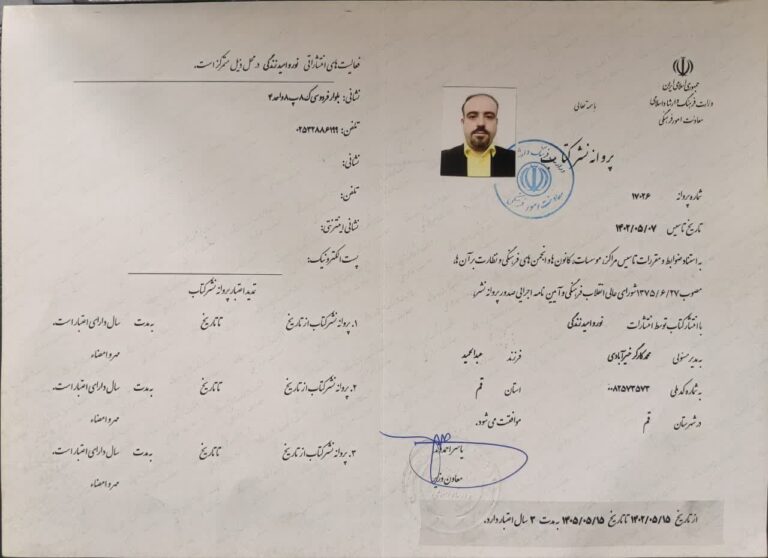 جمهوری اسلامی ایران
وزارت فرهنگ و ارشاد اسلامی
معاونت امور فرهنگی
باسمه تعالی
پروانه نشر کتاب
شماره پروانه ۱۷۰۲۶
تاریخ تاسیس ۱۴۰۲/۰۵/۰۷
به استناد ضوابط و مقررات تاسیس مراکز، موسسات، کانون ها و انجمن های فرهنگی و نظارت بر آن ها
مصوب ۱۳۷۵/۶/۲۷ شورای عالی انقلاب فرهنگی و آیین نامه اجرایی صدور پروانه نشر،
با انتشار کتاب توسط انتشارات نور و امید زندگی
به مدیر مسئولی محمد کارگر خیرآبادی فرزند عبدالحمید
به شماره کد ملی ۰۰۸۲۵۷۳۵۷۳ استان قم
در شهرستان قم موافقت می شود.
یاسر احمدوند
معاون وزیر
از تاریخ ۱۴۰۲/۰۵/۱۵ تا تاریخ ۱۴۰۵/۰۵/۱۵ به مدت ۳ سال اعتبار دارد.
فعالیت های انتشاراتی نور و امید زندگی در محل ذیل متمرکز است.
نشانی: بلوار فردوسی ک ۸ پ ۸ واحد ۴
تلفن: ۰۲۵۳۲۸۸۶۱۹۹
نشانی:
تلفن:
نشانی اینترنتی:
پست الکترونیک:
تمدید اعتبار پروانه نشر کتاب
۱. پروانه نشر کتاب از تاریخ تا تاریخ به مدت سال دارای اعتبار است.
مهر و امضاء
۲. پروانه نشر کتاب از تاریخ تا تاریخ به مدت سال دارای اعتبار است.
مهر و امضاء
۳. پروانه نشر کتاب از تاریخ تا تاریخ به مدت سال دارای اعتبار است.
مهر و امضاء